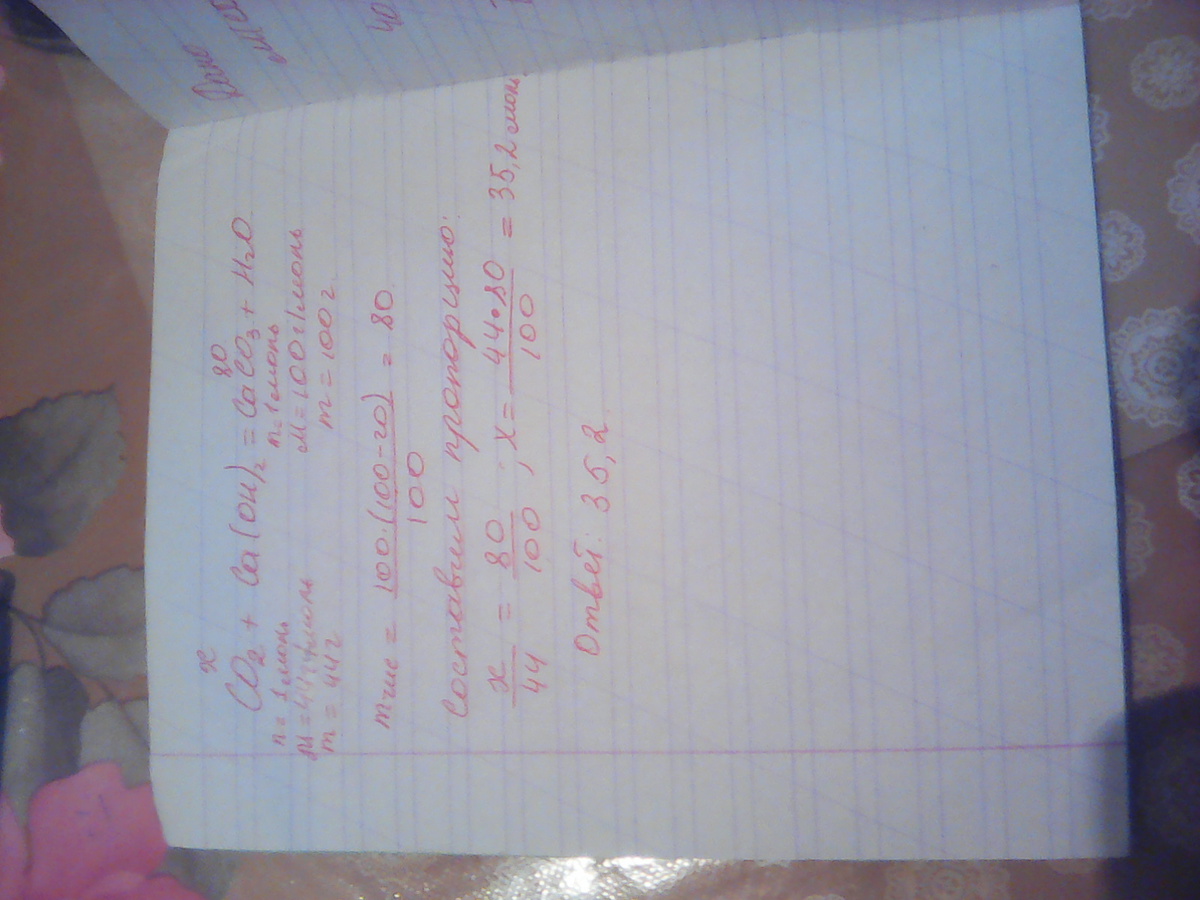 Дано
40
x 80
CO₂ + Ca(OH)₂ = CaCO₃ + H₂O
n = 1моль n = 1моль
M = 44г/моль M = 100г/моль
m = 44г m = 100г
mчис = 100·(100-20) / 100 = 80.
Составим пропорцию:
x/44 = 80/100 ; x = 44•80/100 = 35,2 моль.
Ответ: 35,2.